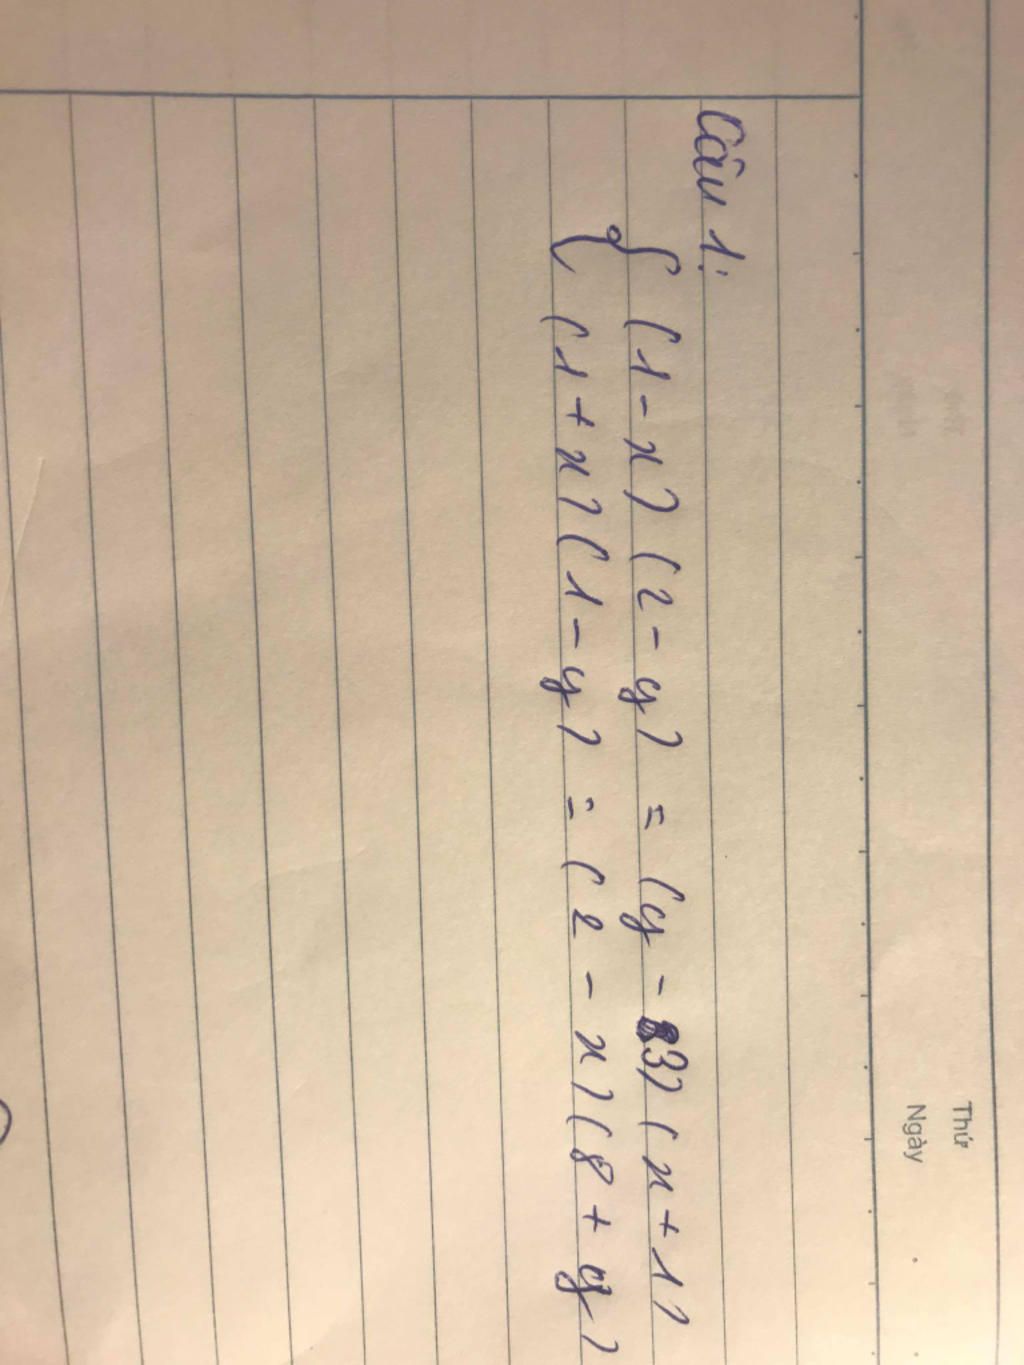 Thứ
Ngày
Câu 1:
{ (1-x)(2-y) = (y-3)(x+1)
(1+x)(1-y) = (2-x)(8+y)